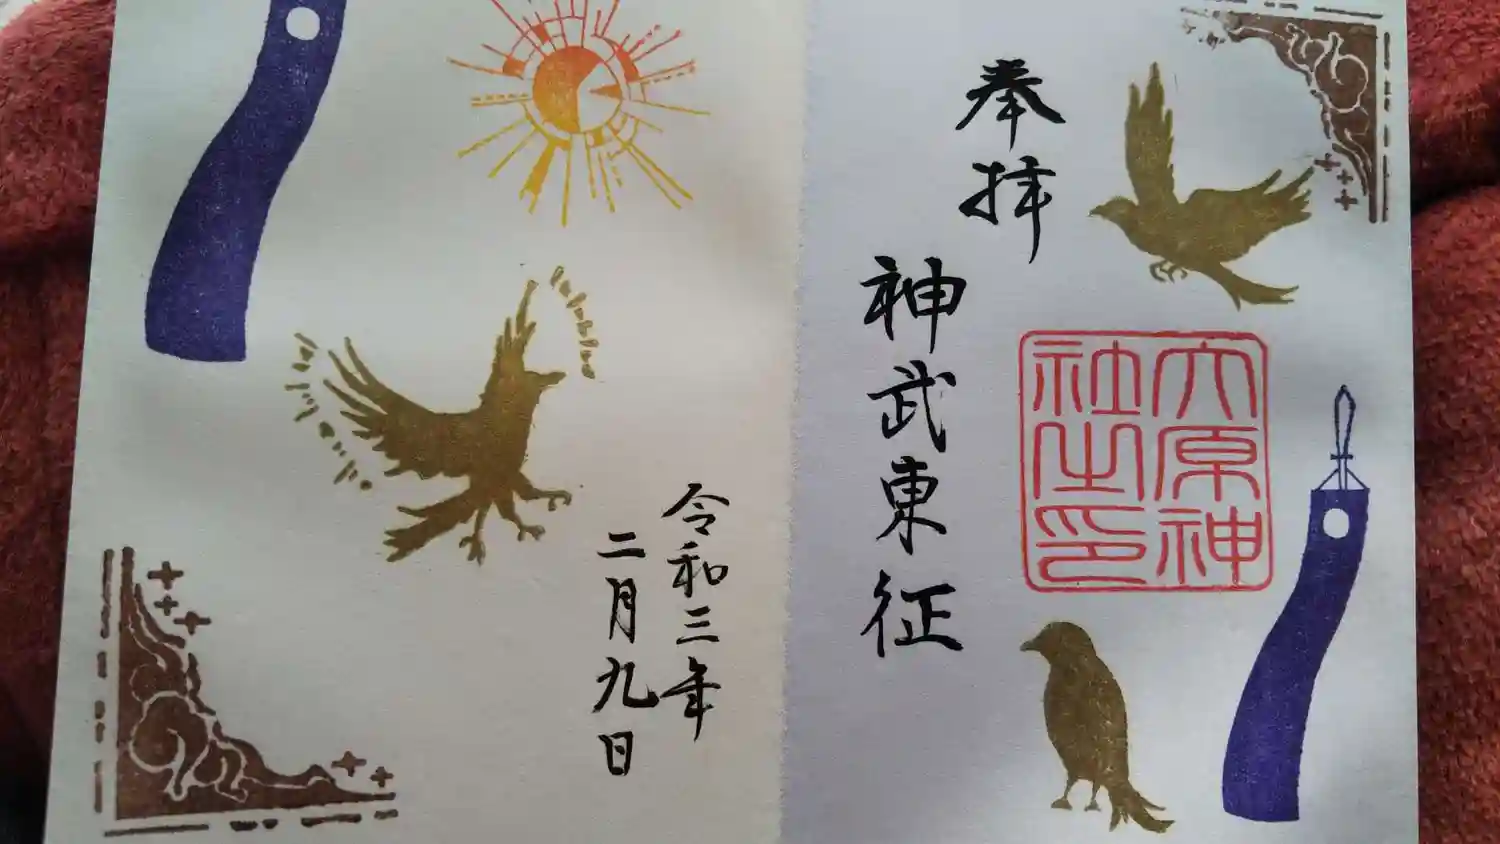 奉拝
六原神
社之印
神武東征
令和三年
二月九日